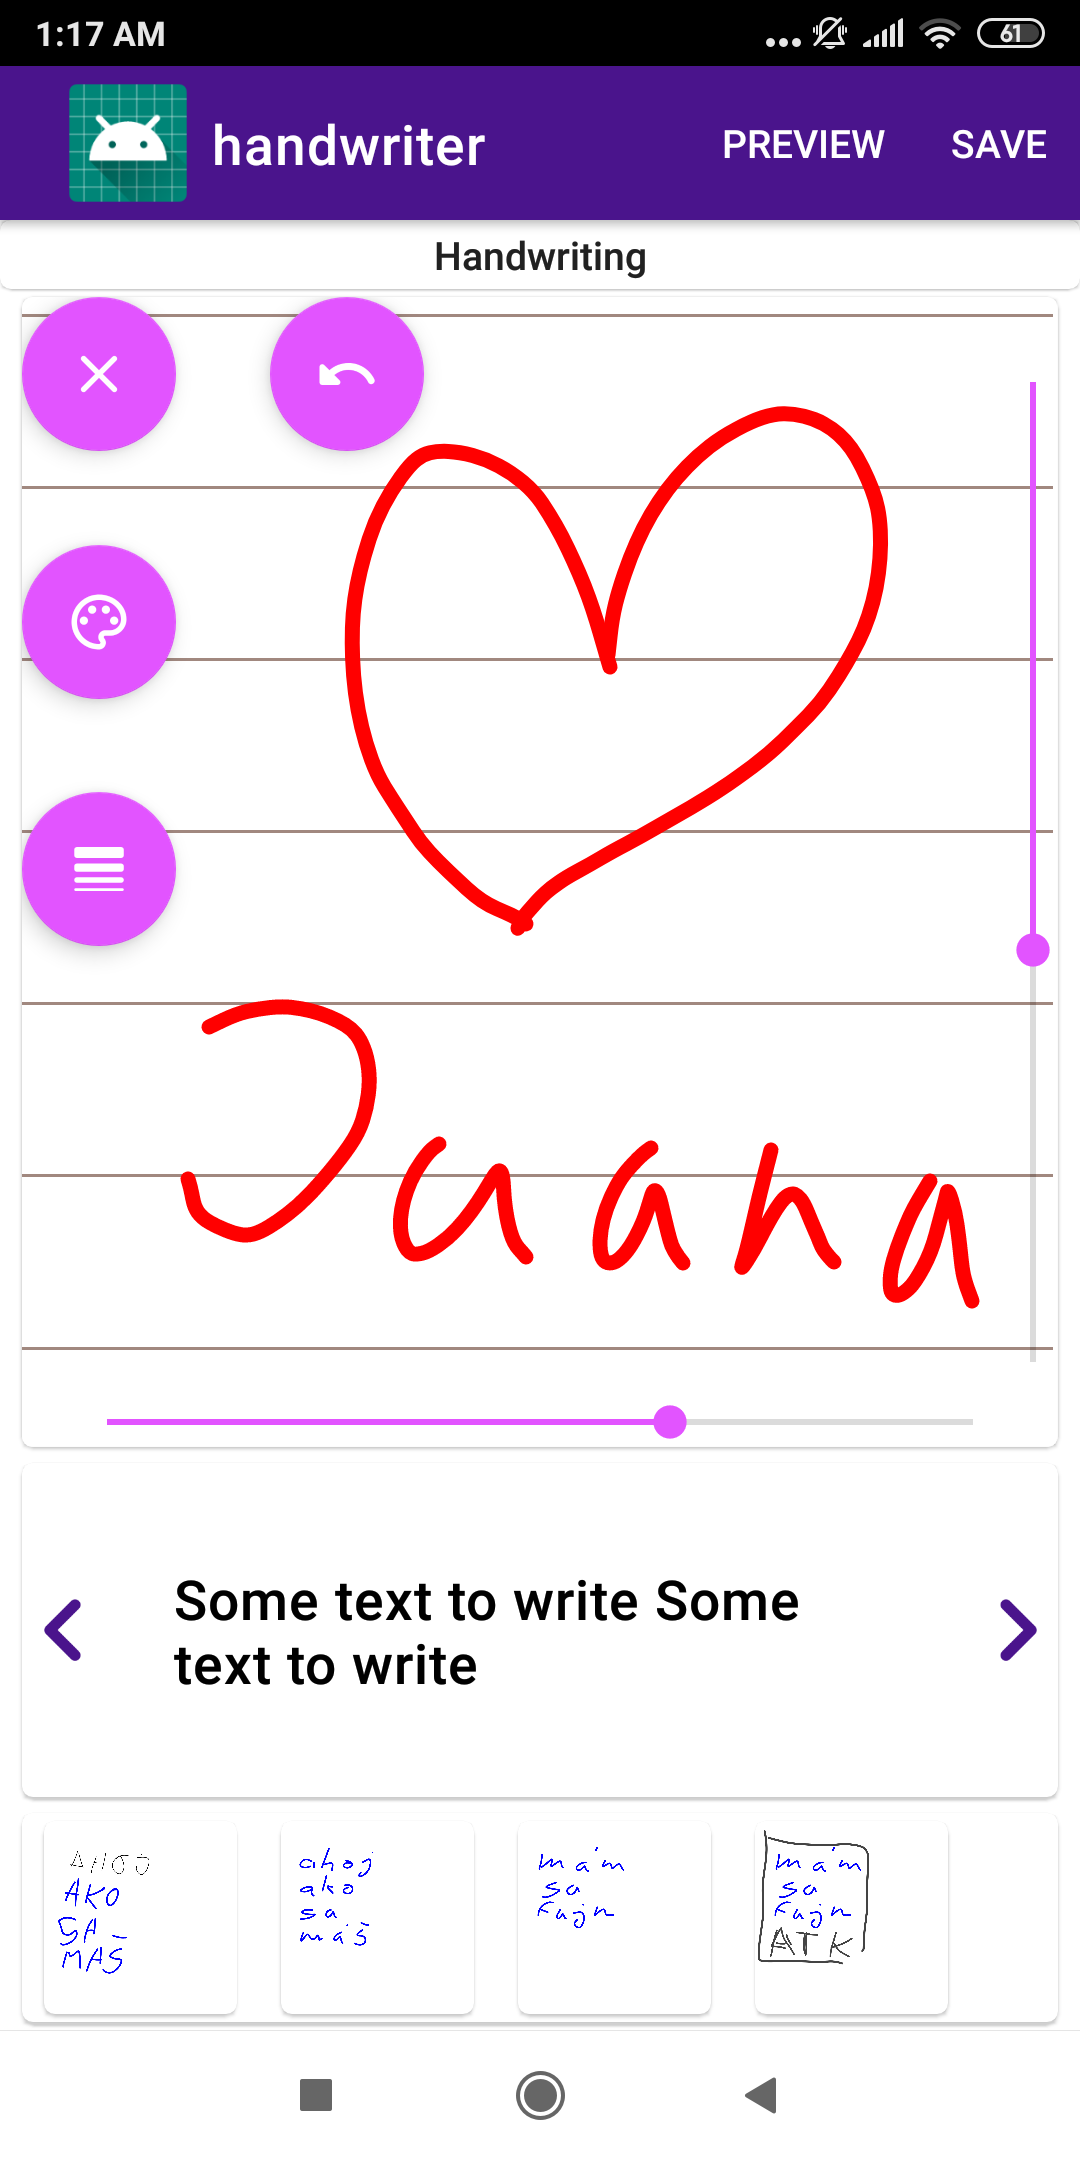 1:17 AM
61
handwriter
PREVIEW
SAVE
Handwriting
Juana
Some text to write Some
text to write
AHOJ
AKO
SA
MAŠ
ahoj
ako
sa
máš
mám
sa
fajn
mám
sa
fajn
ATK